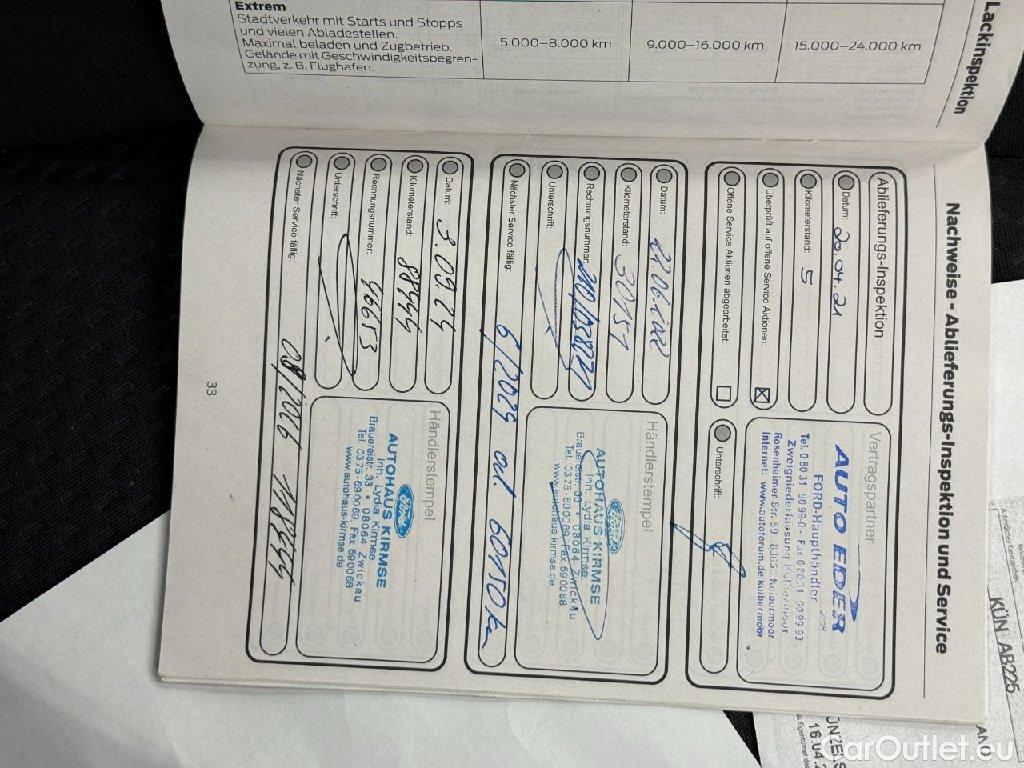 Extrem
Stadtverkehr mit Starts und Stopps
und vielen Abladestellen.
Maximal beladen und Zugbetrieb.
Gelände mit Geschwindigkeitsbegren-
zung, z. B. Flughafen.
5.000–8.000 km
9.000–16.000 km
15.000–24.000 km
Lackinspektion
Nachweise - Ablieferungs-Inspektion und Service
Ablieferungs-Inspektion
Datum: 20.04.21
Kilometerstand: 5
Überprüft auf offene Service Aktionen:
Offene Service Aktionen abgearbeitet:
Vertragspartner
AUTO EDER
FORD-Haupthändler
Tel. 0 80 31 90 99-0 Fax 0 80 31 90 99 93
Zweigniederlassung Kolbermoor
Rosenheimer Str. 59 83059 Kolbermoor
Internet: www.autoforum.de/kolbermoor
Unterschrift:
Datum:
Kilometerstand: 30151
Rechnungsnummer:
Unterschrift:
Nächster Service fällig:
6/2023 od. 60150 km
Händlerstempel
Ford
AUTOHAUS KIRMSE
Inh. Lydia Kirmse
Brauereistr. 33 • 08064 Zwickau
Tel. 0375-690069, Fax 690068
www.autohaus-kirmse.de
Datum: 3.09.24
Kilometerstand: 88444
Rechnungsnummer: 46653
Unterschrift:
Nächster Service fällig: 08/2026 118444
Händlerstempel
Ford
AUTOHAUS KIRMSE
Inh. Lydia Kirmse
Brauereistr. 33 • 08064 Zwickau
Tel. 0375-690069, Fax 690068
www.autohaus-kirmse.de
33
KÜN AB225
16.04.2
CarOutlet.eu